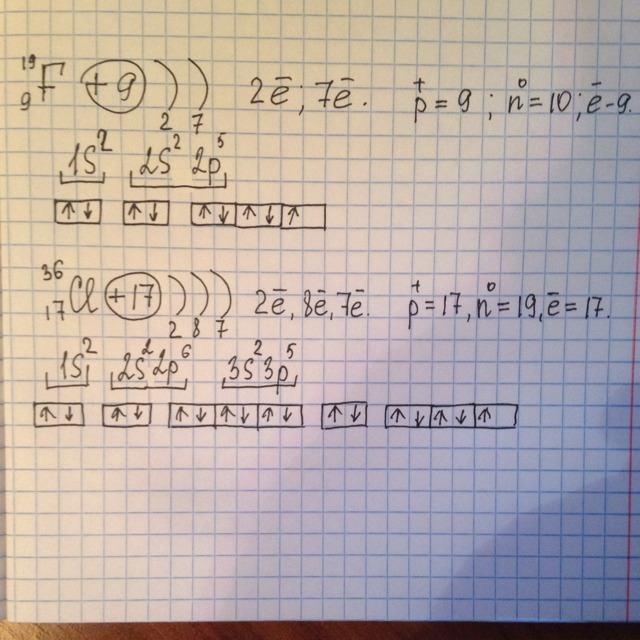 ¹⁹₉F +9 ) ) 2ē; 7ē. p⁺ = 9; n⁰ = 10; ē - 9.
2 7
1S² 2S² 2p⁵
↑↓ ↑↓ ↑↓ ↑↓ ↑
³⁶₁₇Cl +17 ) ) ) 2ē, 8ē, 7ē. p⁺ = 17, n⁰ = 19, ē = 17.
2 8 7
1S² 2S² 2p⁶ 3S² 3p⁵
↑↓ ↑↓ ↑↓ ↑↓ ↑↓ ↑↓ ↑↓ ↑↓ ↑